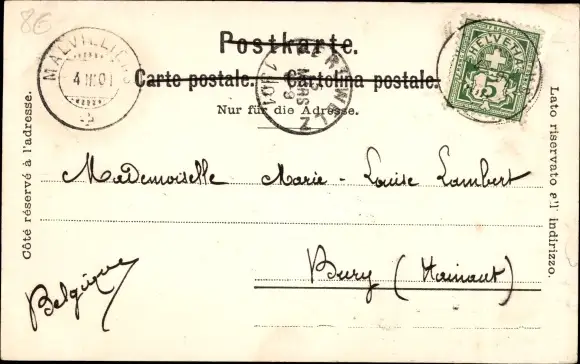 8€
Postkarte.
MALVILLIERS
4 III 01
HELVETIA
5
Carte postale. Cartolina postale.
Nur für die Adresse.
Côté réservé à l'adresse.
Lato riservato all' indirizzo.
Mademoiselle Marie-Louise Lambert
Bury (Hainaut)
Belgique